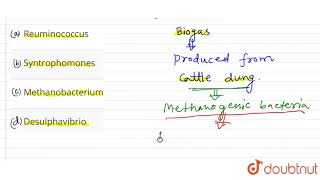 (a) Reuminococcus
(b) Syntrophomones
(c) Methanobacterium
(d) Desulphavibrio
Biogas
produced from
cattle dung.
Methanogenic bacteria
doubtnut